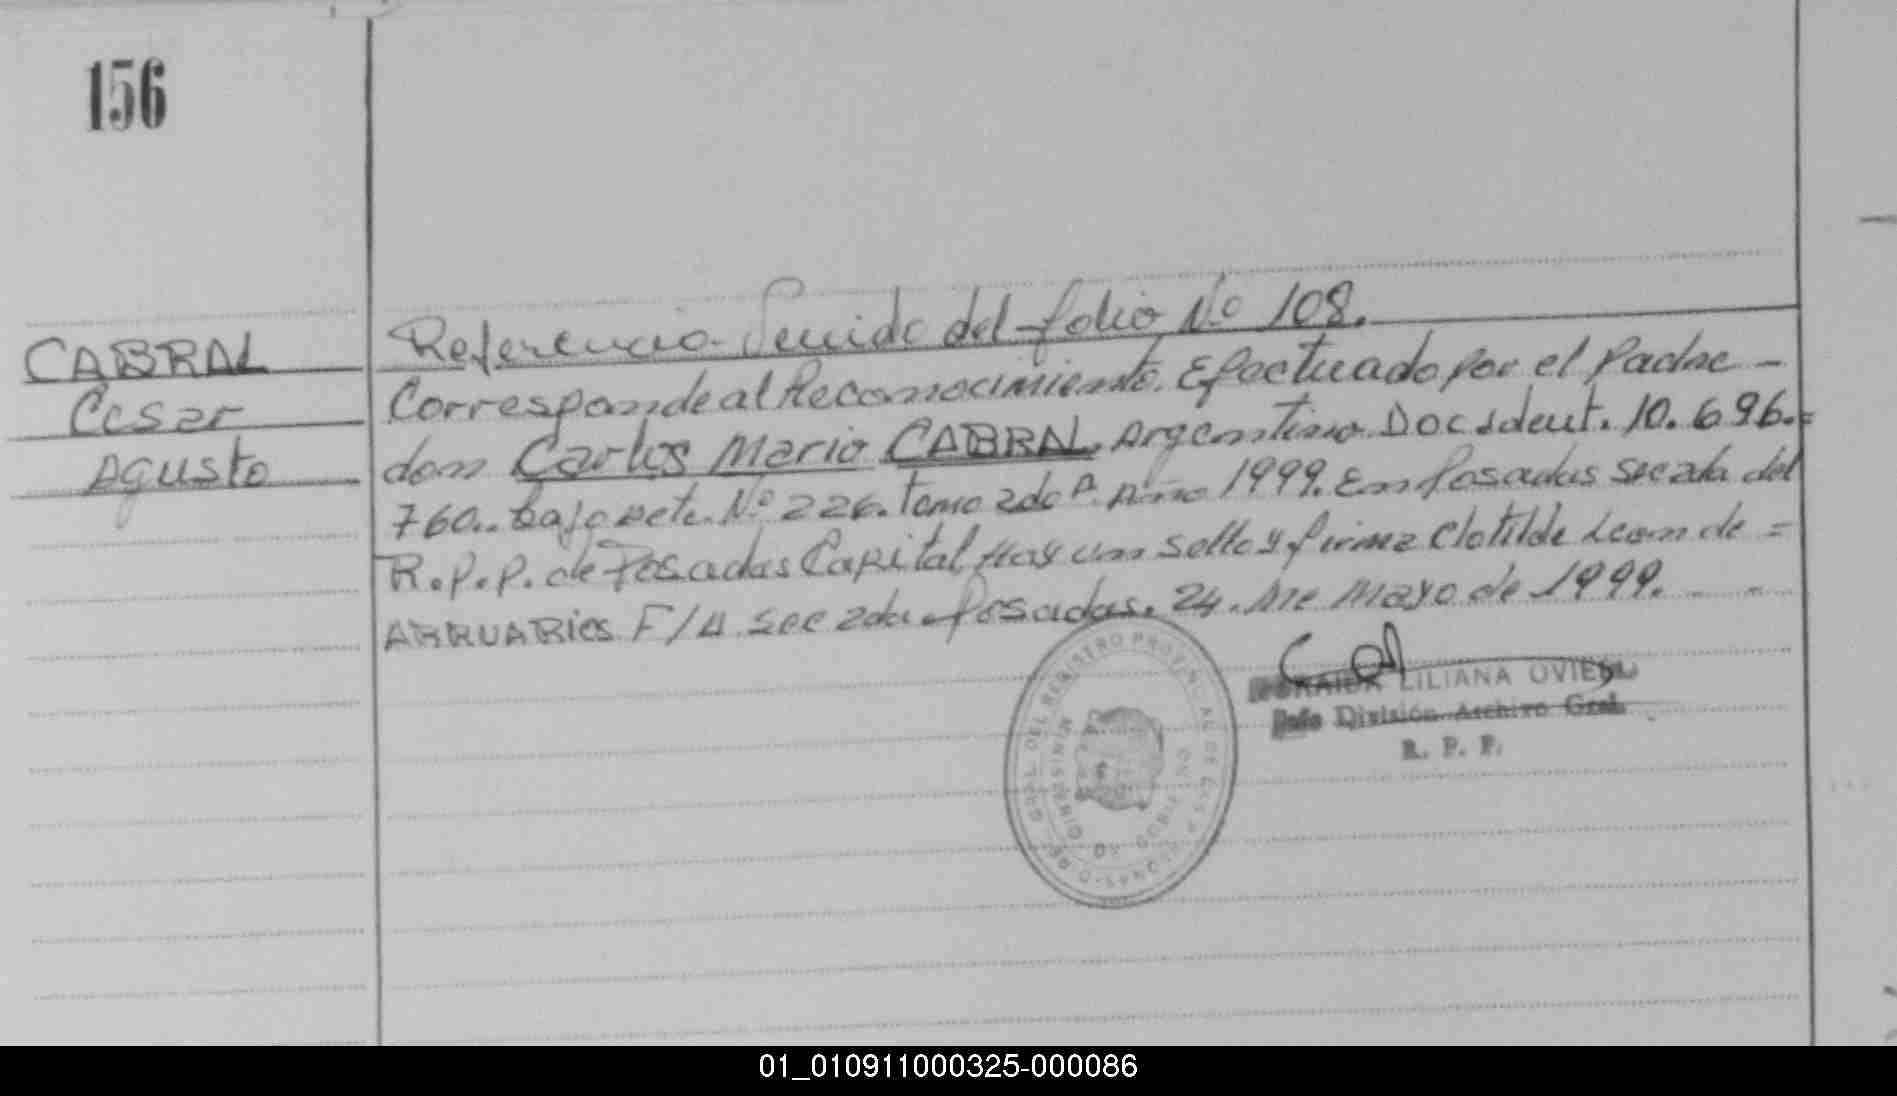 156
CABRAL
Cesar
Agusto
Referencia Venida del folio Nº 108.
Corresponde al Reconocimiento. Efectuado por el Padre -
don Carlos Mario CABRAL, Argentino. Doc. Ident. 10.696.=
760.. bajo acta. Nº 226. Tomo 2do A. Año 1999. En Posadas Sec 2da del
R.P.P. de Posadas Capital Hay un sello y firma Clotilde Leon de =
ARRUABICS F/A Sec 2da Posadas. 24. de Mayo de 1999.
LILIANA OVIE
Jefe División Archivo Gral.
R. P. P.
GRAL. DEL REGISTRO PROVINCIAL DE
MINISTERIO DE GOBIERNO
01_010911000325-000086